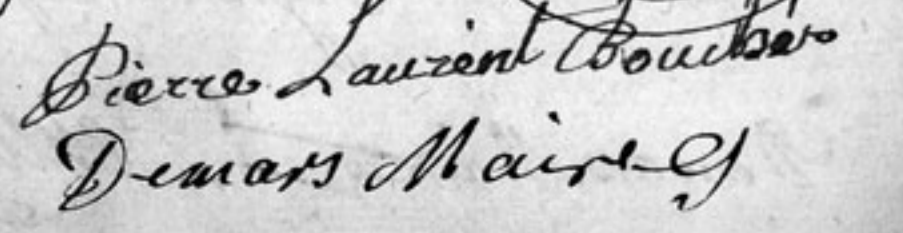 Pierre Laurent Boucher
Demars Maire